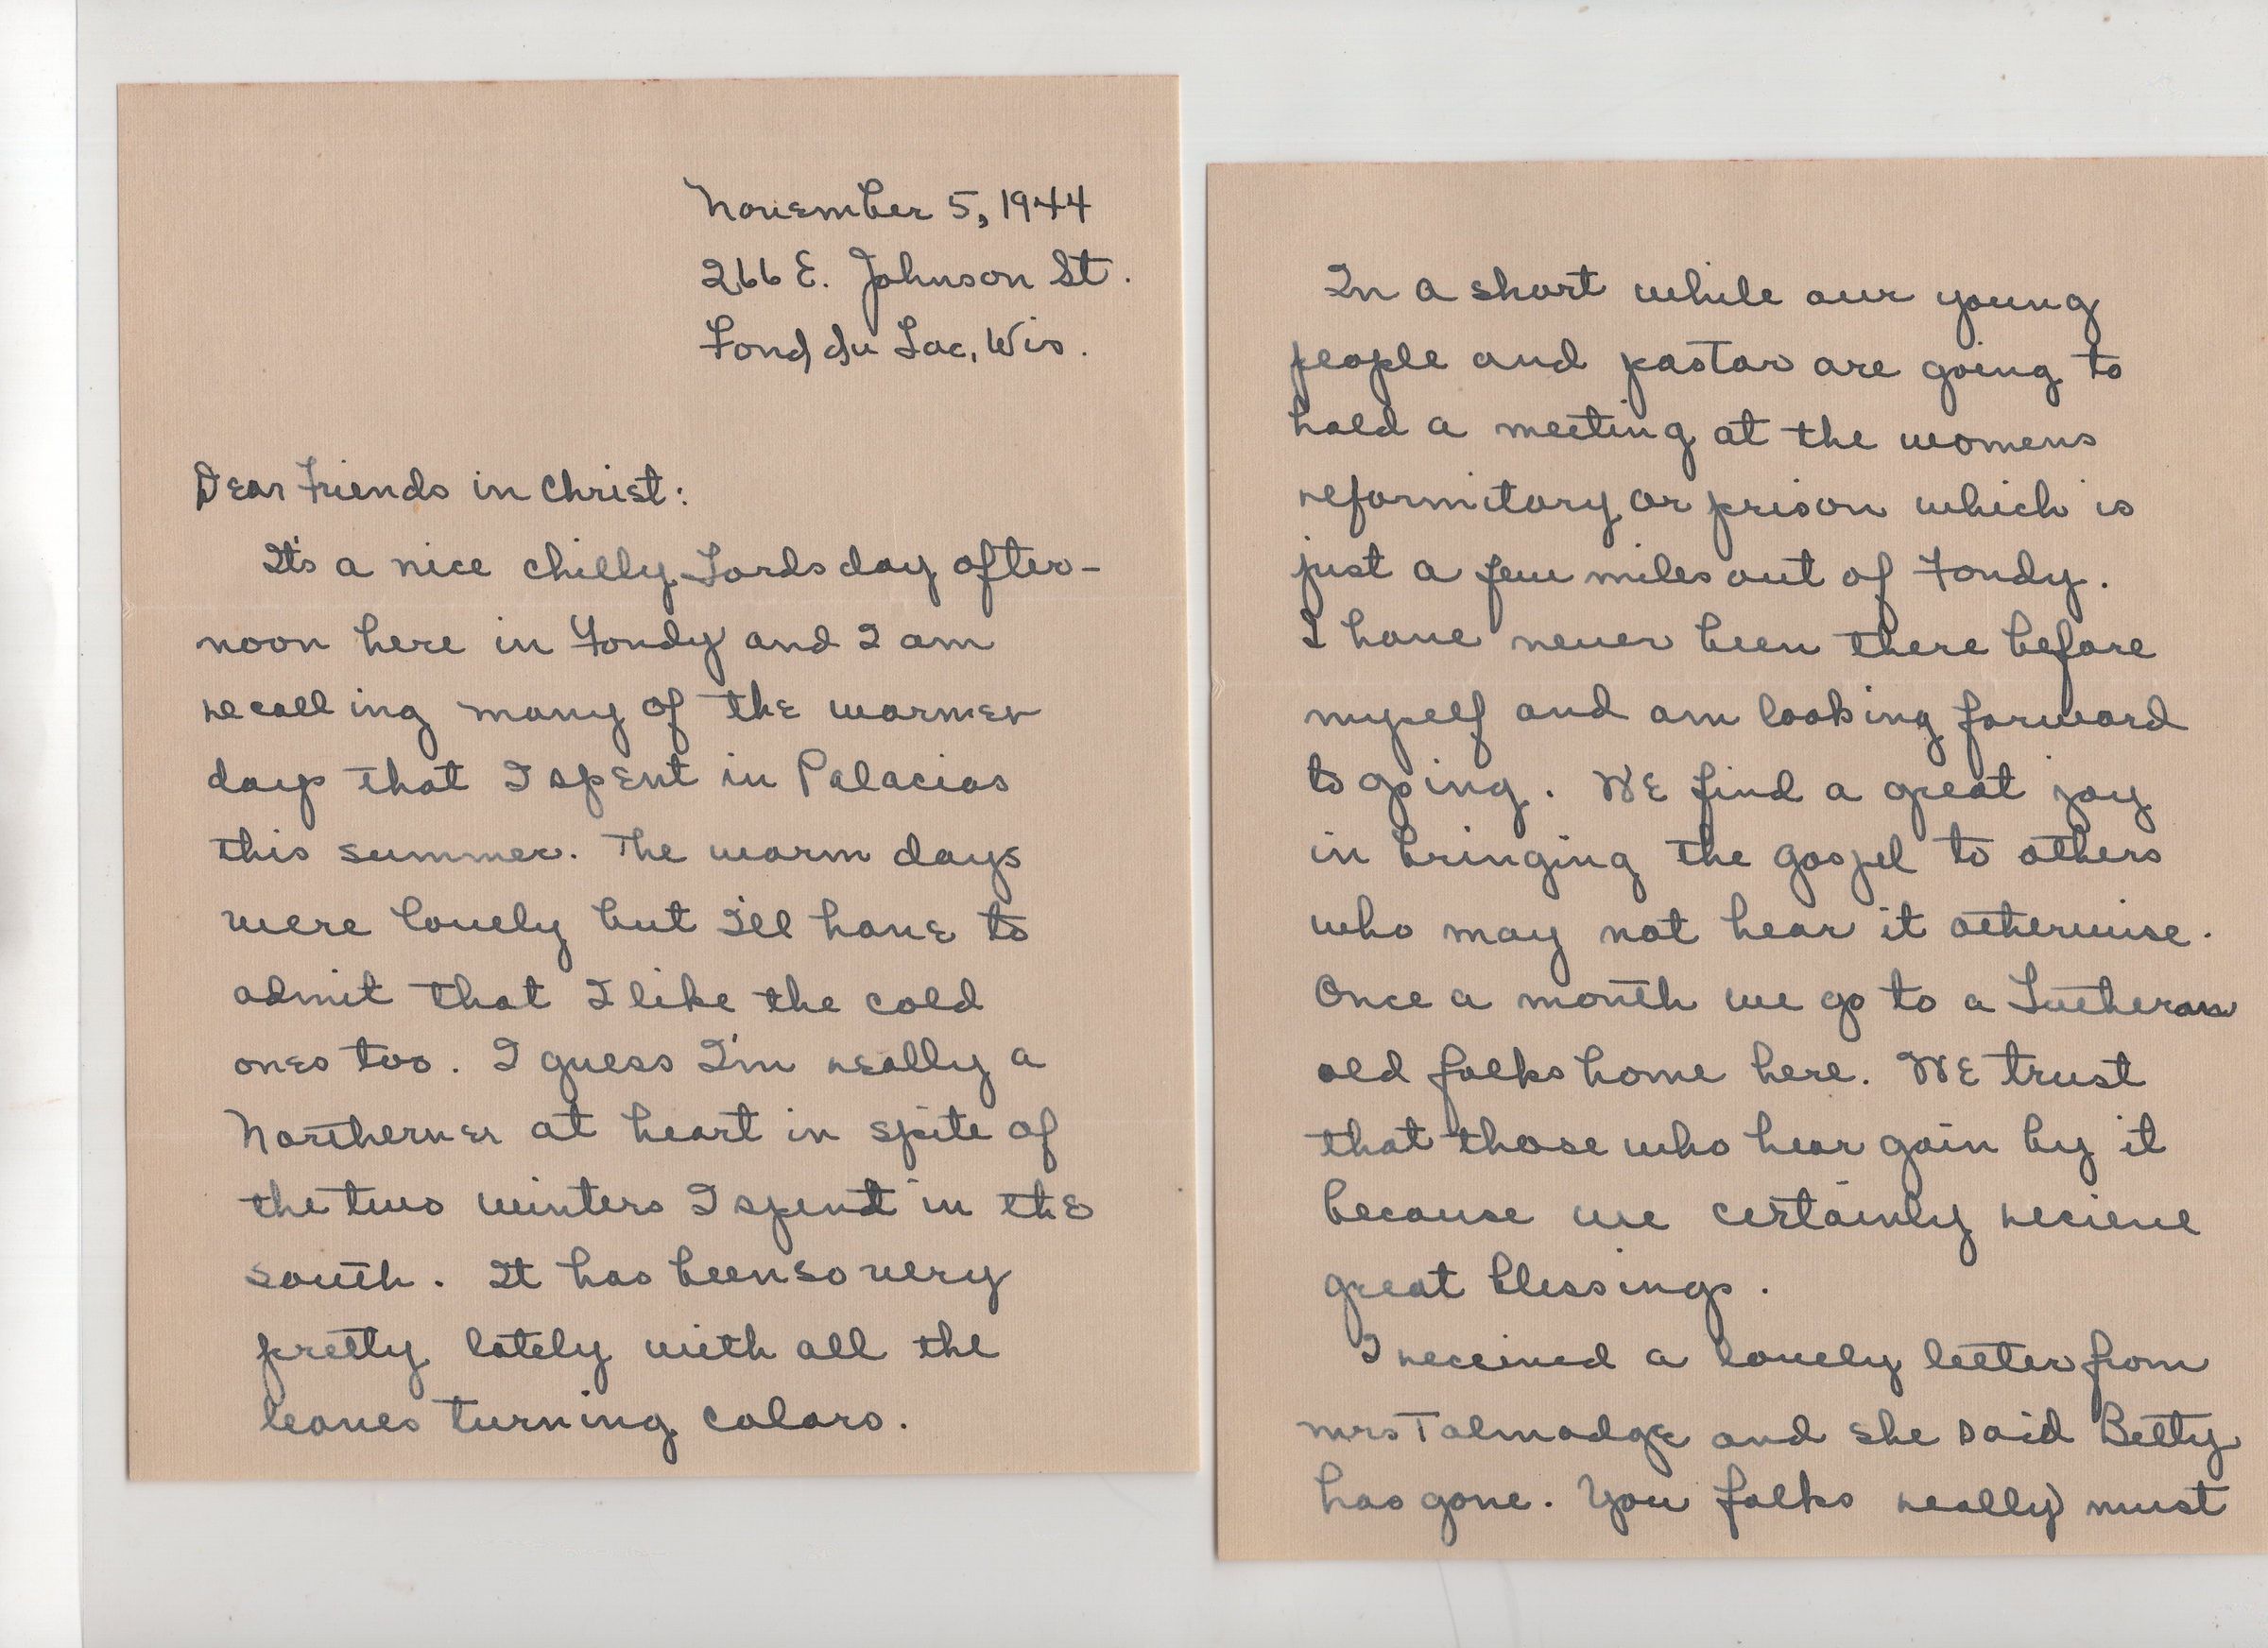 November 5, 1944
266 E. Johnson St.
Fond du Lac, Wis.
Dear Friends in Christ:
It's a nice chilly Lords day after-
noon here in Fondy and I am
recalling many of the warmer
days that I spent in Palacios
this summer. The warm days
were lovely but I'll have to
admit that I like the cold
ones too. I guess I'm really a
Northerner at heart in spite of
the two winters I spent in the
south. It has been so very
pretty lately with all the
leaves turning colors.
In a short while our young
people and pastor are going to
hold a meeting at the womens
reformitory or prison which is
just a few miles out of Fondy.
I have never been there before
myself and am looking forward
to going. We find a great joy
in bringing the gospel to others
who may not hear it otherwise.
Once a month we go to a Lutheran
old folks home here. We trust
that those who hear gain by it
because we certainly recieve
great blessings.
I received a lovely letter from
Mrs Talmadge and she said Betty
has gone. You folks really must